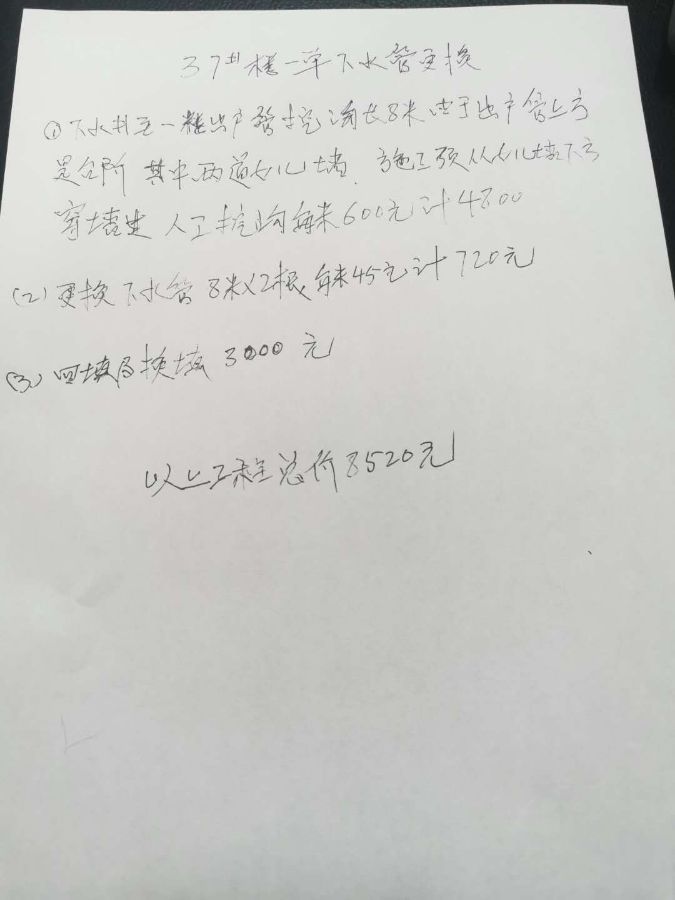 37#楼一单下水管更换
①下水井至一楼出户管挖沟长8米由于出户管上方
是台阶 其中两道女儿墙 施工须从女儿墙下方
穿墙进 人工挖沟每米600元计4800
(2)更换下水管8米×2根每米45元计720元
(3)回填局换填3000元
以上工程总价8520元